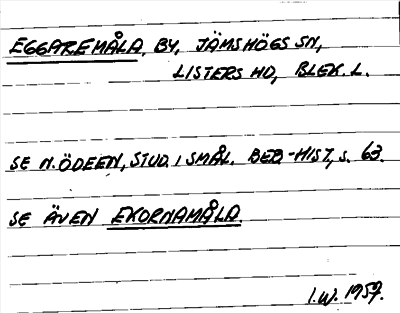 EGGAREMÅLA, BY, JÄMSHÖGS SN,
LISTERS HD, BLEK. L.
SE N. ÖDEEN, STUD. I SMÅL. BEB.-HIST, S. 63.
SE ÄVEN EKORNAMÅLA.
I.W. 1959.